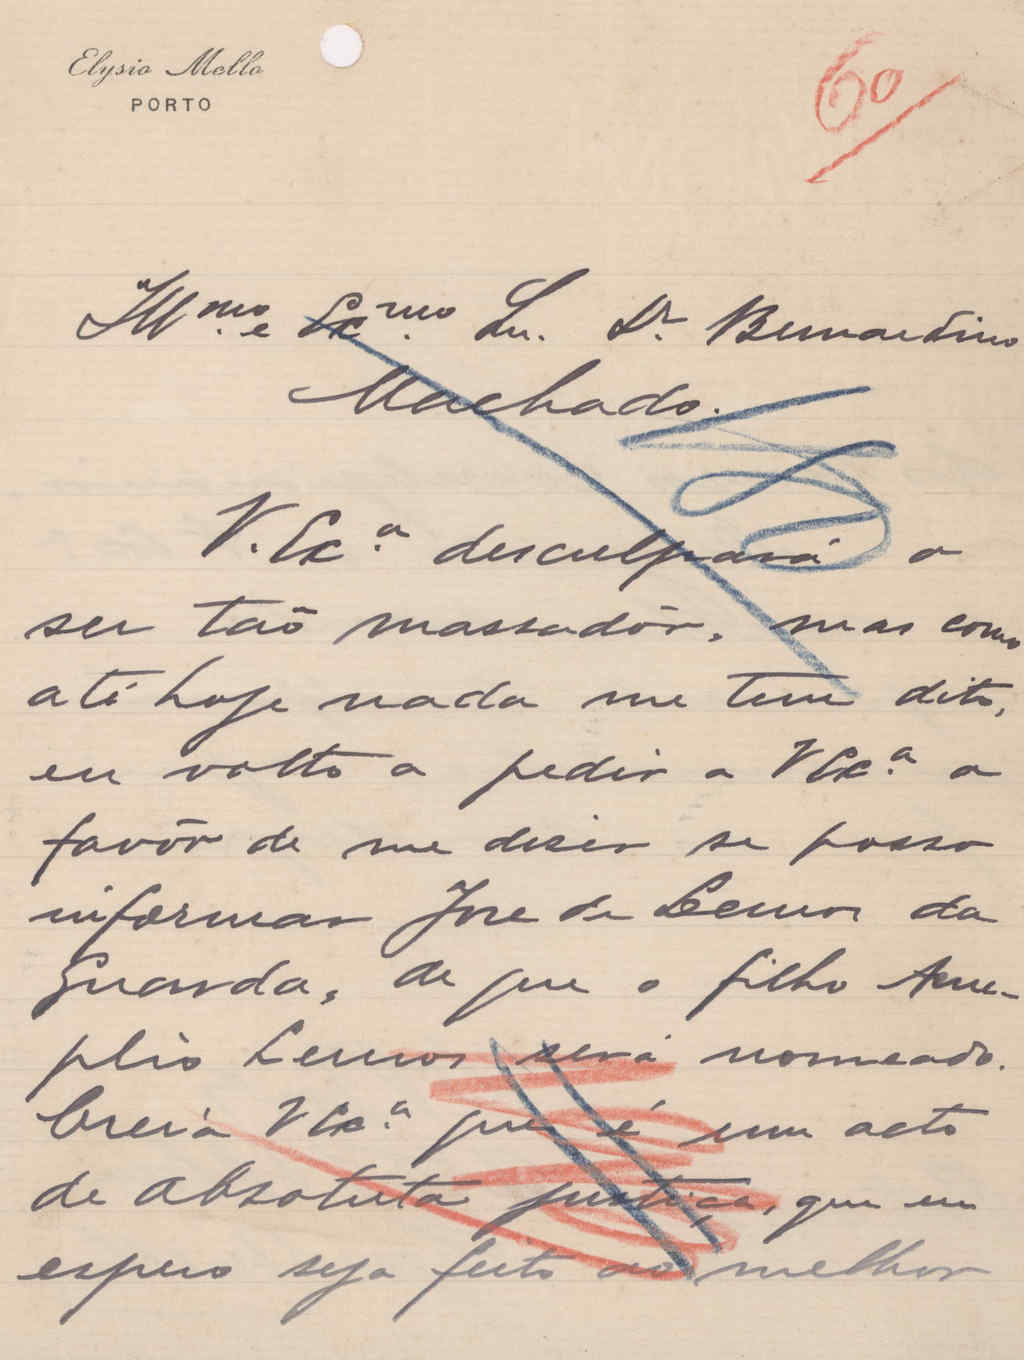 Elysio Mello
PORTO
60
Illmo. e Exmo. Snr. Dr. Bernardino
Machado.
V. Exa. desculpará o
ser taõ massadôr, mas como
até hoje nada me tem dito,
eu volto a pedir a VExa. o
favôr de me dizer se posso
informar José de Lemos da
Guarda, de que o filho
Lemos será nomeado.
Creia VExa. que é um acto
de absoluta justiça, que eu
espero seja feito ao melhor